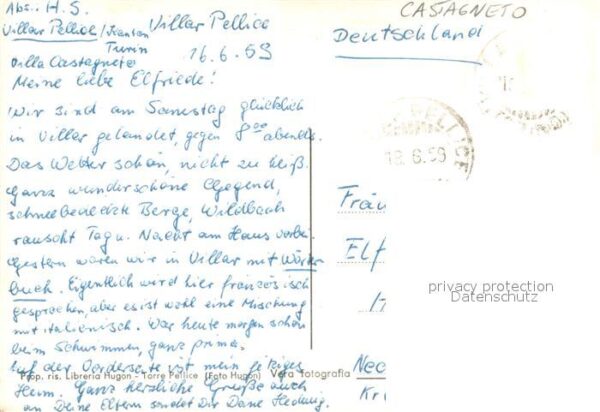 Abs.: H. S.
Villar Pellice/Kanton
Turin
Villa Castagneto
Villar Pellice
16.6.59
Meine liebe Elfriede!
Wir sind am Samstag glücklich
in Villar gelandet, gegen 8 00 abends.
Das Wetter schön, nicht zu heiß.
Ganz wunderschöne Gegend,
schneebedeckte Berge, Wildbach
rauscht Tag u. Nacht am Haus vorbei.
Gestern waren wir in Villar mit Wörter
buch. Eigentlich wird hier französisch
gesprochen, aber es ist wohl eine Mischung
mit italienisch. War heute morgen schon
beim Schwimmen, ganz prima.
Auf der Vorderseite ist mein jetziges
Heim. Ganz herzliche Grüße auch
an Deine Eltern sendet Dir Deine Hedwig.
Prop. ris. Libreria Hugon - Torre Pellice (Foto Hugon) Vera fotografia
CASTAGNETO
Deutschland
PELLICE
18.6.59
Fräu
Elf
privacy protection
Datenschutz
Nec
Kr